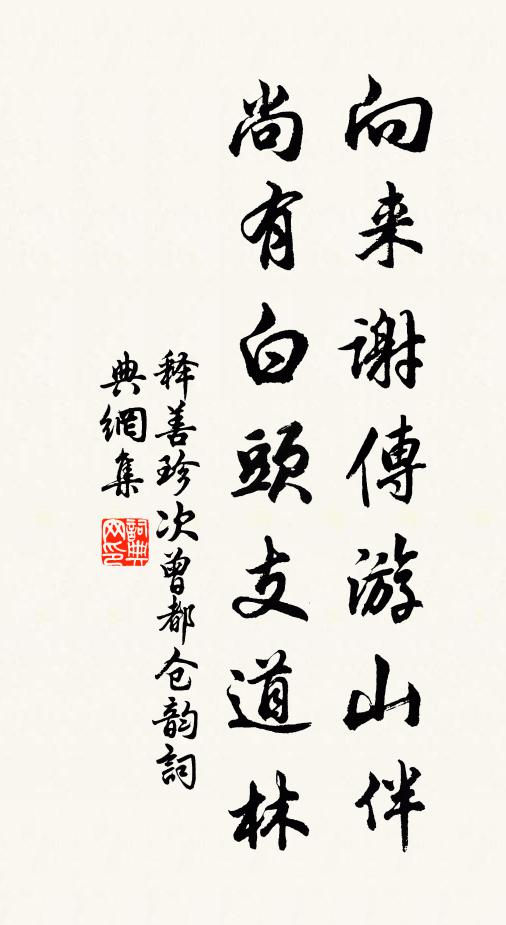 向来谢傅游山伴
尚有白头支道林
释善珍次曾都仓韵词
典網集
詞典
网印